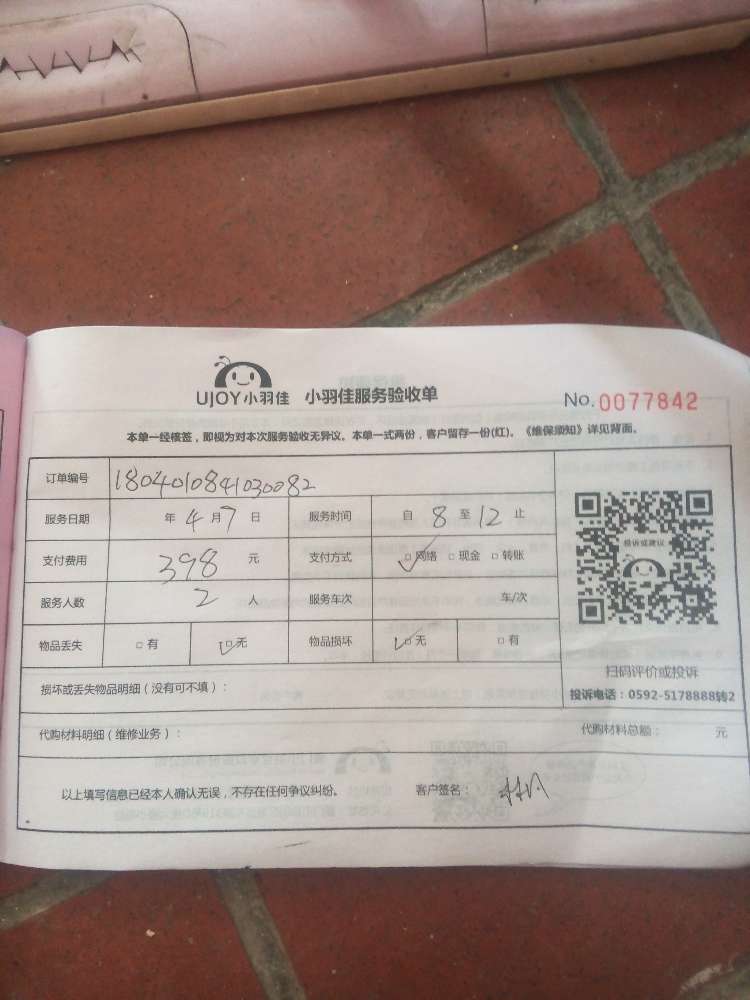 UJOY小羽佳 小羽佳服务验收单 No. 0077842
本单一经核签，即视为对本次服务验收无异议。本单一式两份，客户留存一份(红)。《维保须知》详见背面。
订单编号 1804010841030082
服务日期 年 4 月 7 日 服务时间 自 8 至 12 止
投诉或建议
支付费用 398 元 支付方式 □网络 □现金 □转账
服务人数 2 人 服务车次 车/次
物品丢失 □有 □无 物品损坏 □无 □有
扫码评价或投诉
损坏或丢失物品明细（没有可不填）：
投诉电话：0592-5178888转2
代购材料明细（维修业务）： 代购材料总额： 元
以上填写信息已经本人确认无误，不存在任何争议纠纷。 客户签名：